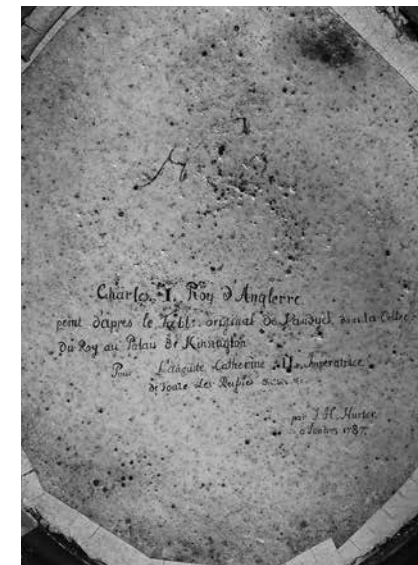 Charles. I. Roy d'Anglerre
peint d'apres le Tabl: original de Vandyck dans la Collec-
Du Roy au Palau de Kinsington
Pour L'auguste Catherine II. Imperatrice
de Toute Les
par J. H. Hurter.
a Londres 1787.